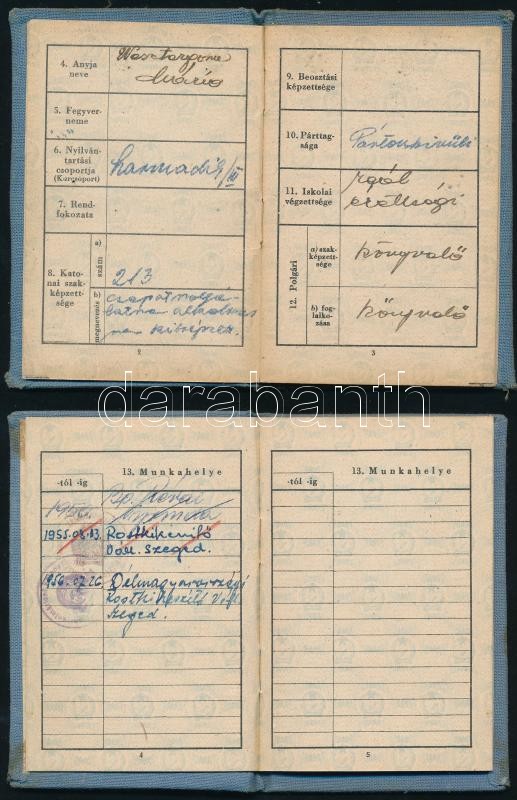 4. Anyja
neve
Mária
5. Fegyver-
neme
6. Nyilván-
tartási
csoportja
(Korcsoport)
harmadik/III
7. Rend-
fokozata
8. Kato-
nai szak-
képzett-
sége
a)
szám
213
b)
megnevezés
csapatszolgá-
latra alkalmas
2
9. Beosztási
képzettsége
10. Párttag-
sága
Pártonkívüli
11. Iskolai
végzettsége
érettségi
12. Polgári
a) szak-
képzett-
sége
könyvelő
b) fog-
lalkozása
könyvelő
3
darabanth
-tól -ig
13. Munkahelye
1950.
1955.08.03.
Rostkikészítő
Váll. Szeged.
1956.02.26.
Délmagyarországi
Rostkikészítő V.
Szeged.
4
-tól -ig
13. Munkahelye
5